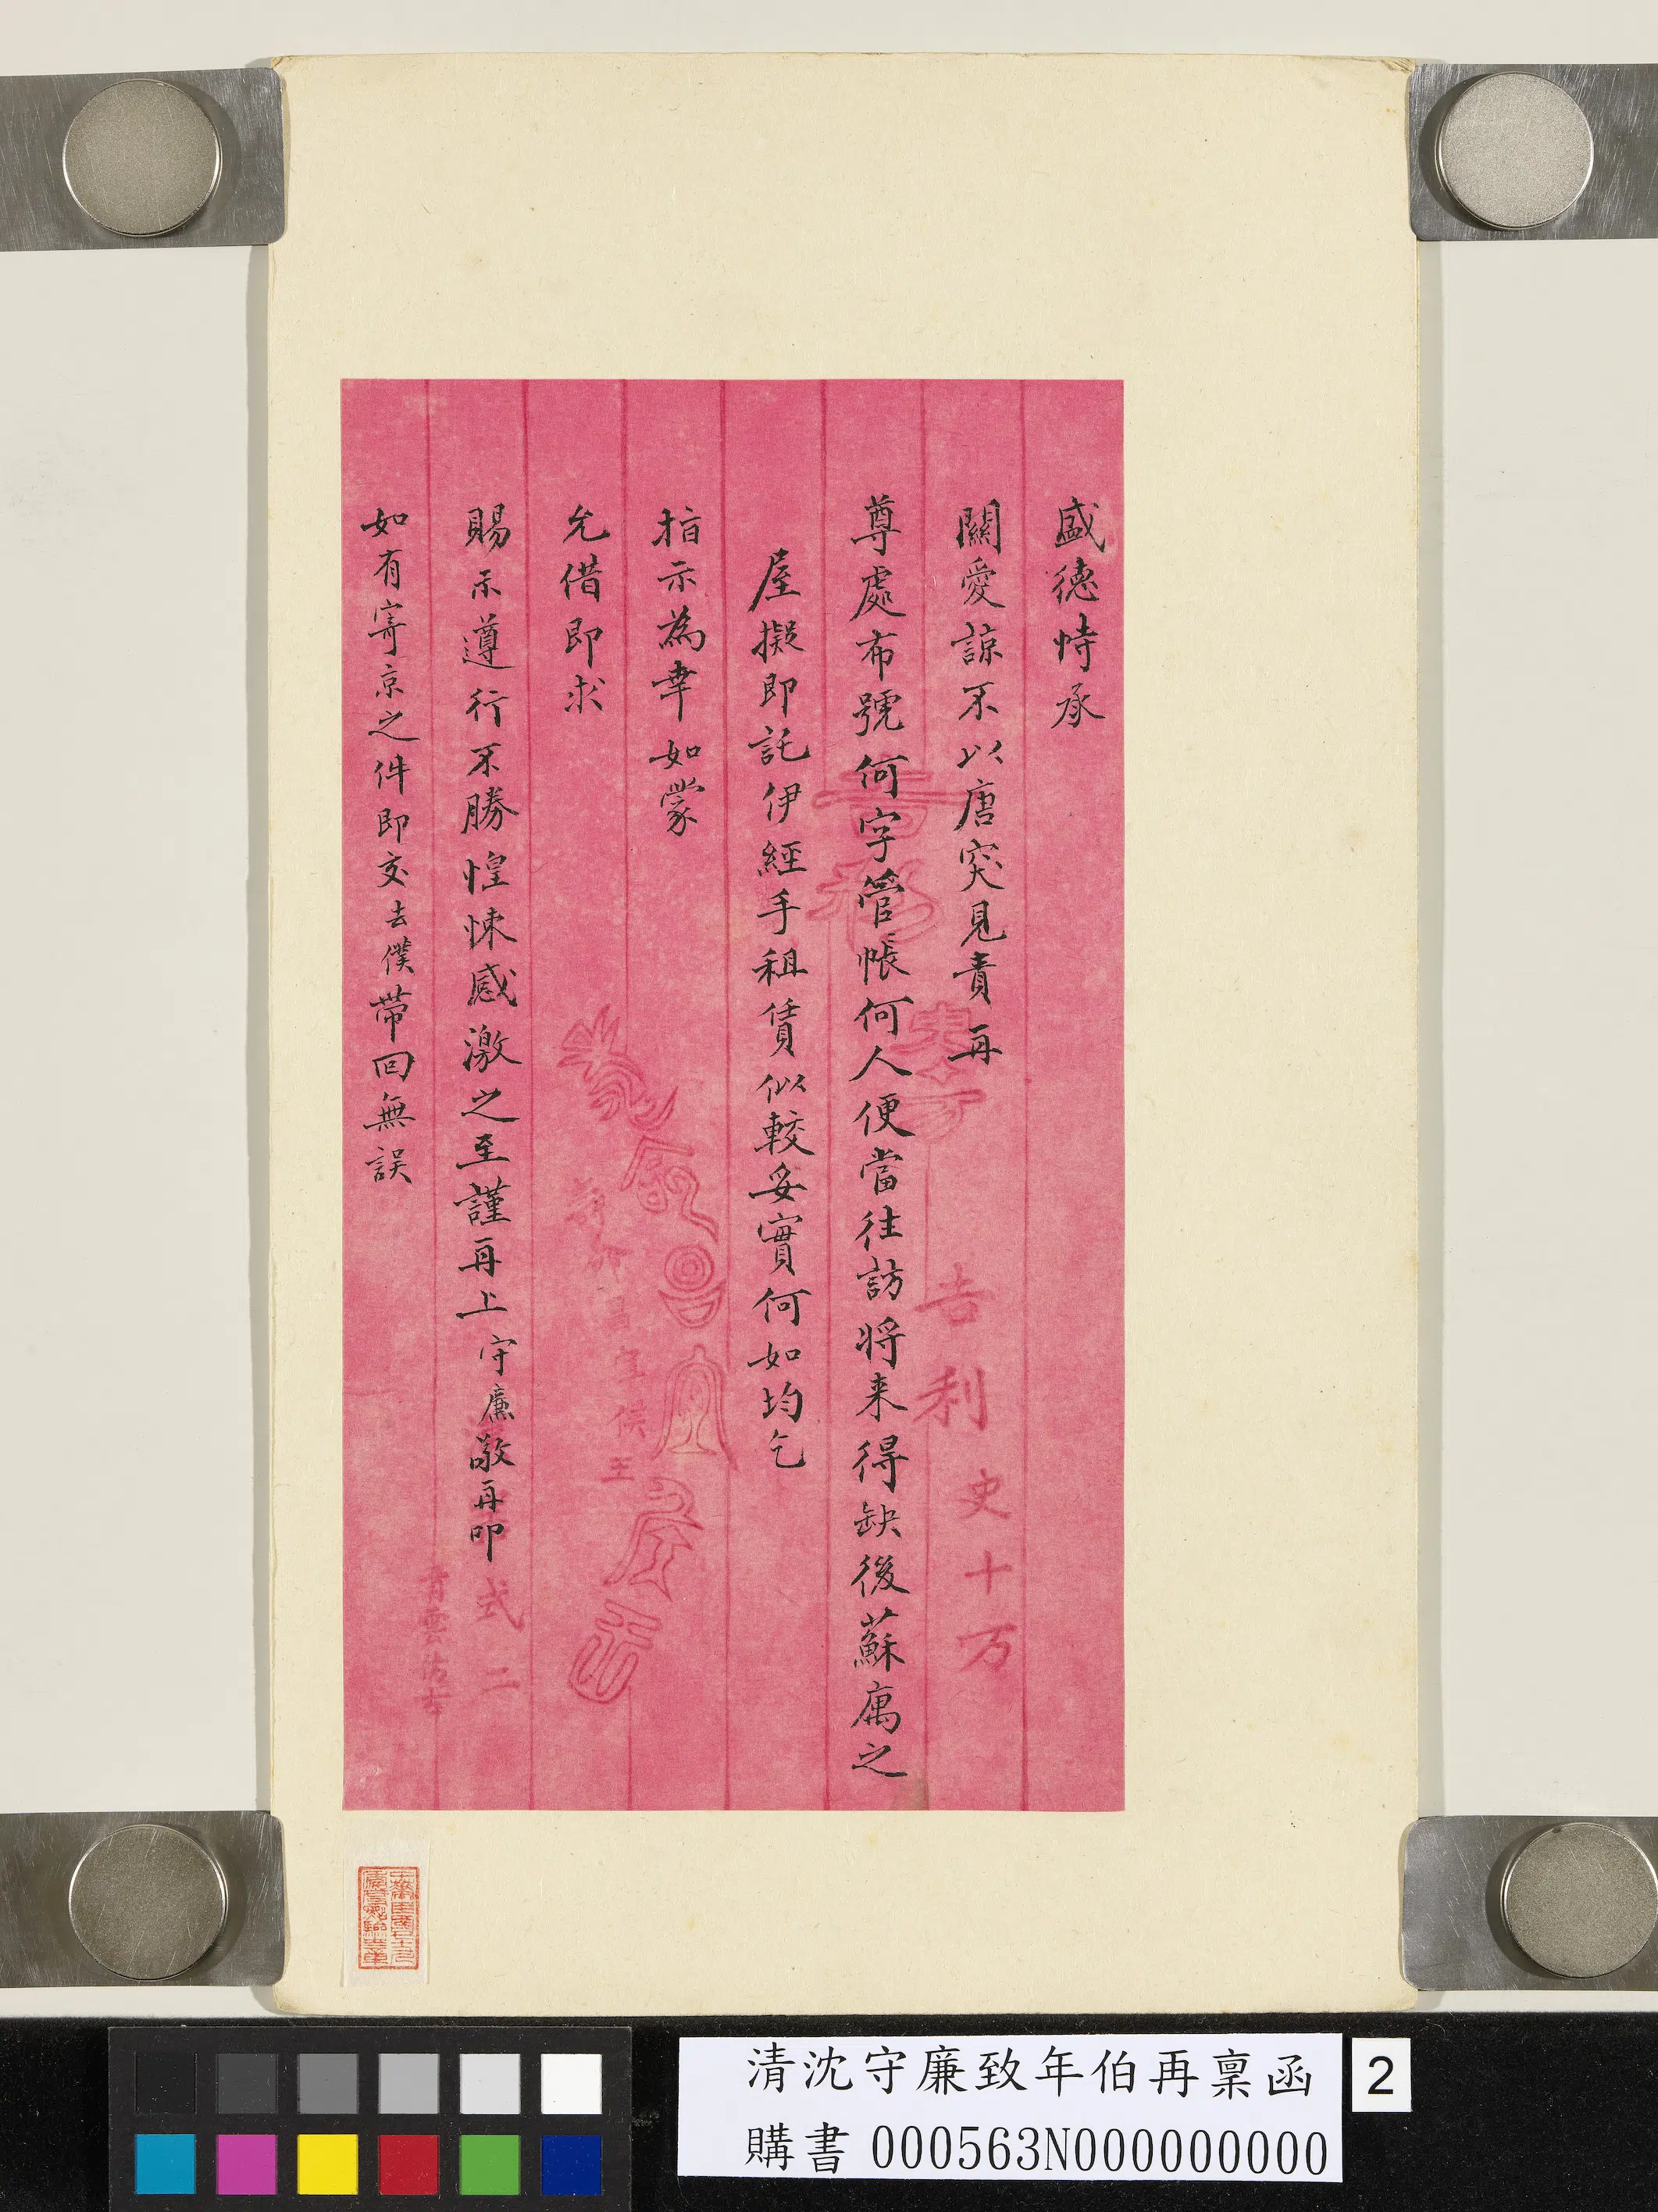 盛德恃承
關愛諒不以唐突見責再
尊處布號何字管帳何人便當往訪將来得缺後蘇寓之
屋擬即託伊經手租賃似較妥實何如均乞
指示為幸如蒙
允借即求
賜示遵行不勝惶悚感激之至謹再上守廉敬再叩
如有寄京之件即交去僕带回無誤
吉利
史十万
宜侯王
式二
清沈守廉致年伯再稟函
購書000563N000000000
2